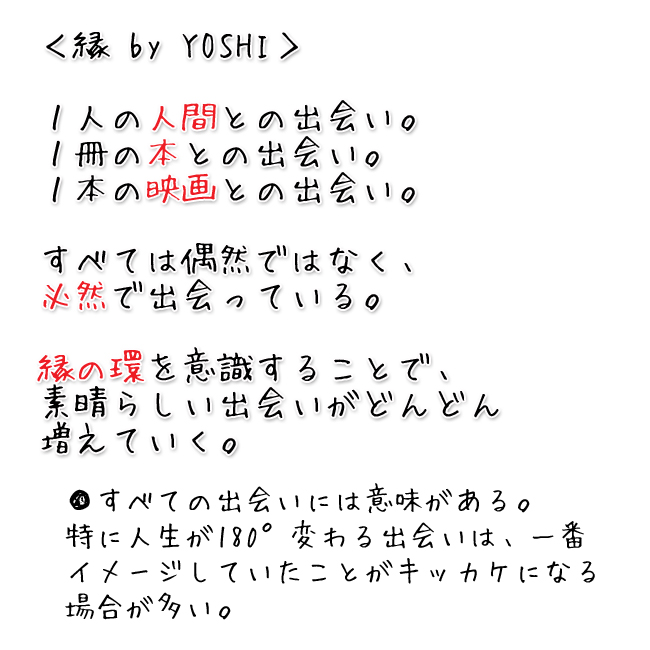 ＜縁 by YOSHI＞
１人の人間との出会い。
１冊の本との出会い。
１本の映画との出会い。
すべては偶然ではなく、
必然で出会っている。
縁の環を意識することで、
素晴らしい出会いがどんどん
増えていく。
●すべての出会いには意味がある。
特に人生が180°変わる出会いは、一番
イメージしていたことがキッカケになる
場合が多い。